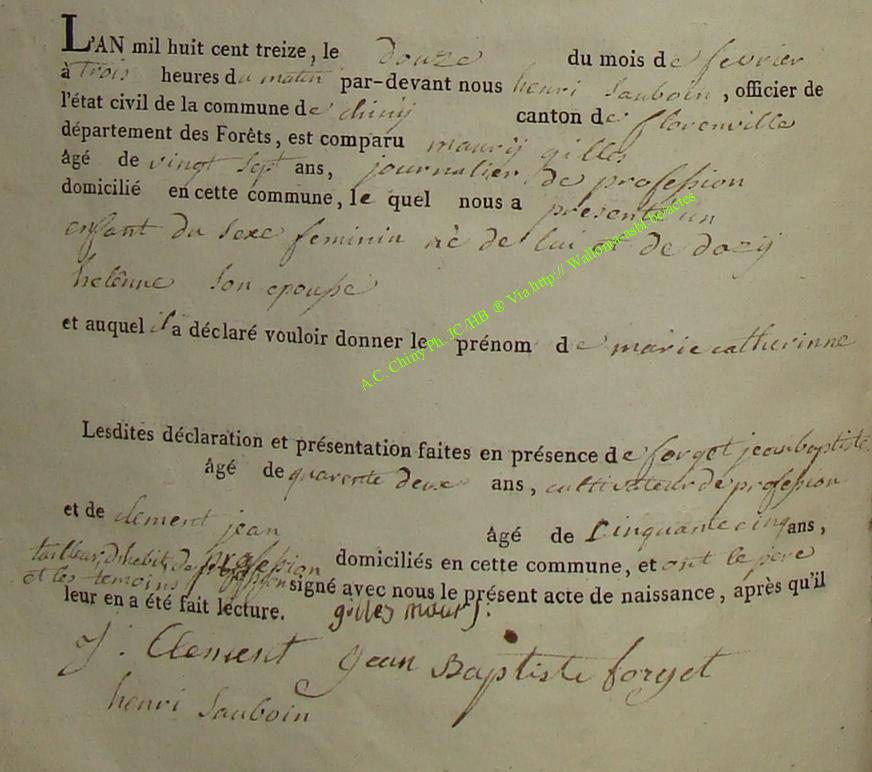 L'AN mil huit cent treize, le douze du mois de fevrier
à trois heures du matin par-devant nous henri sauboin, officier de
l'état civil de la commune de chiny canton de florenville
département des Forêts, est comparu maury gilles
âgé de vingt sept ans, journalier de profession
domicilié en cette commune, le quel nous a presenté un
enfant du sexe feminin né de lui et de dozy
helénne son epouse
et auquel il a déclaré vouloir donner le prénom de marie catherinne
A.C. Chiny Ph. JC/HB ® Via http:// Wallonia.asbl.be/actes
Lesdites déclaration et présentation faites en présence de forget jean baptiste
âgé de quarente deux ans, cultivateur de profession
et de clement jean âgé de Cinquante cinq ans,
tailleur d'habit de profession domiciliés en cette commune, et ont le pere
et les temoins signé avec nous le présent acte de naissance, après qu'il
leur en a été fait lecture. gilles maury
J. Clement jean Baptiste forget
henri sauboin